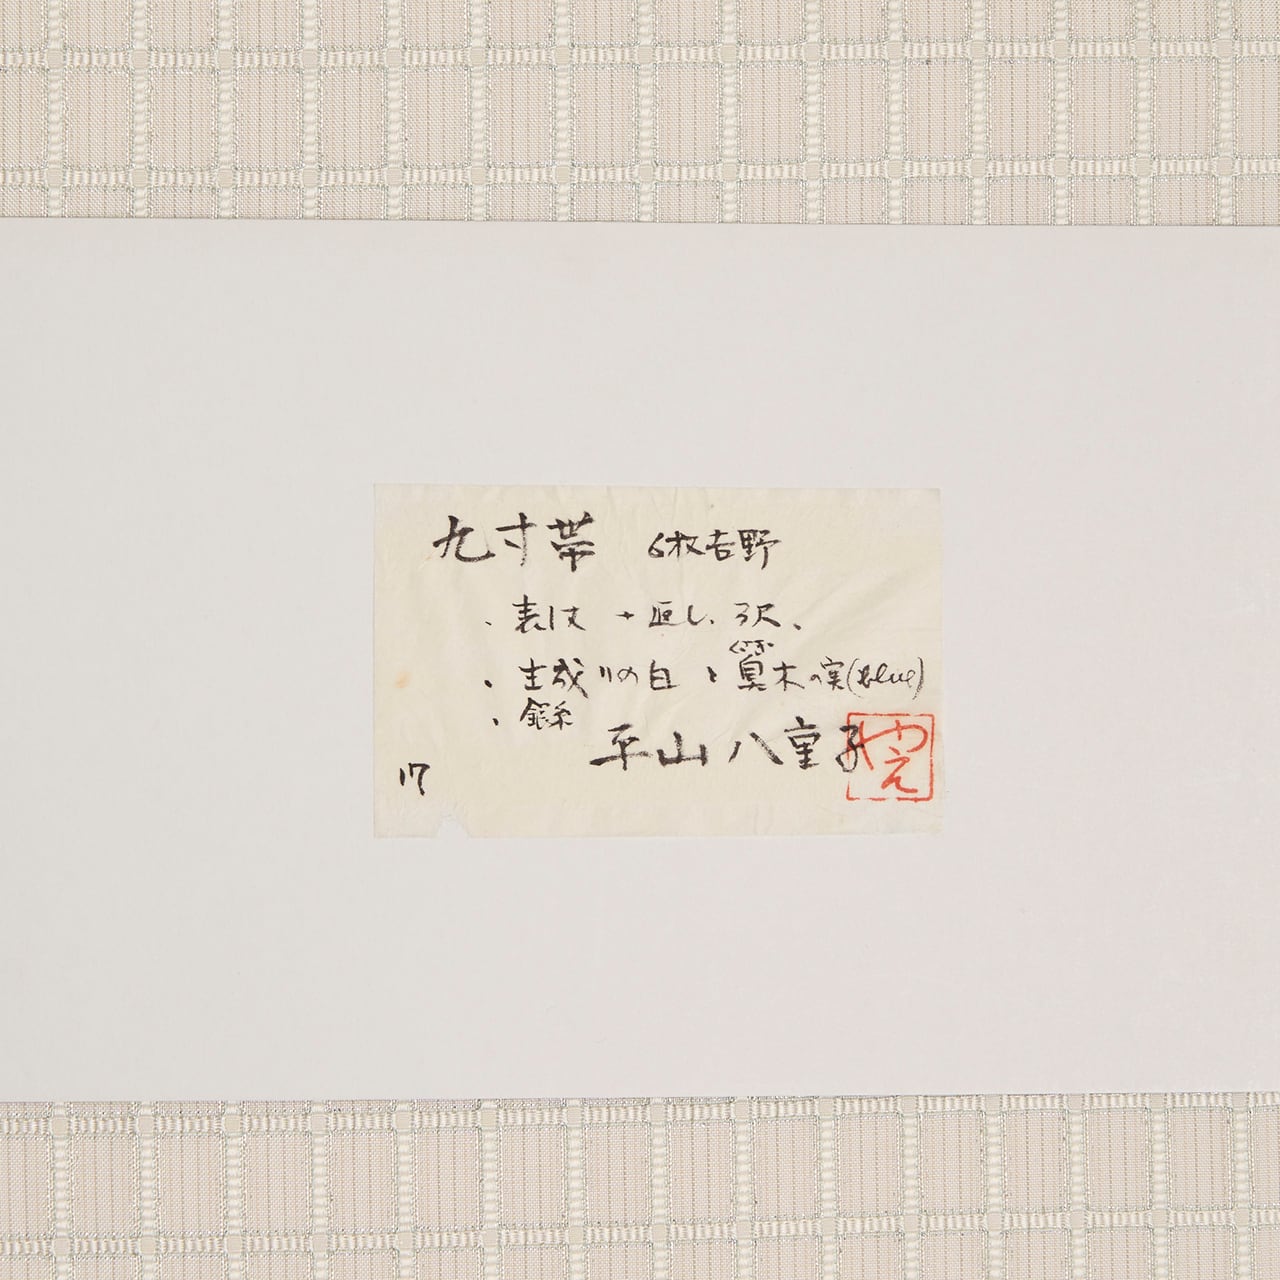 九寸帯 6枚吉野
・表は 十返し、3尺、
・生成りの白 と 箕木の実(blue)
くさぎ
・銀糸
平山 八重子
やえ
17